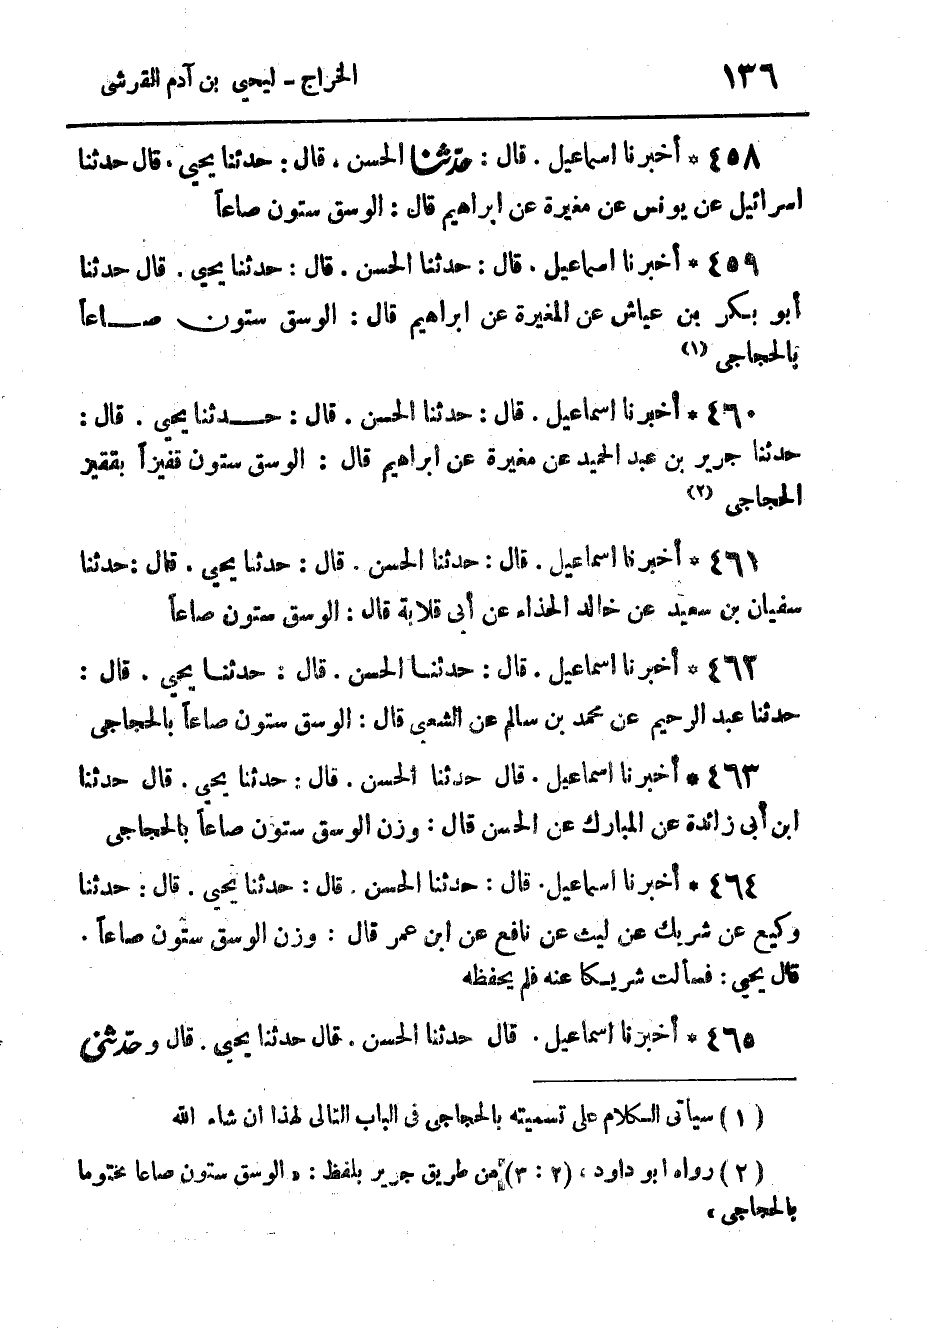 ١٣٦ الخراج ـ ليحيى بن آدم القرشى
٤٥٨ * أخبرنا اسماعيل . قال : حدّثنا الحسن . قال : حدثنا يحيى . قال حدثنا
اسرائيل عن يونس عن مغيرة عن ابراهيم قال : الوسق ستون صاعاً
٤٥٩ * أخبرنا اسماعيل . قال : حدثنا الحسن . قال : حدثنا يحيى . قال حدثنا
أبو بكر بن عياش عن المغيرة عن ابراهيم قال : الوسق ستون صاعاً
بالحجاجى (١)
٤٦٠ * أخبرنا اسماعيل . قال : حدثنا الحسن . قال : حدثنا يحيى . قال :
حدثنا جرير بن عبد الحميد عن مغيرة عن ابراهيم قال : الوسق ستون قفيزاً بقفيز
الحجاجى (٢)
٤٦١ * أخبرنا اسماعيل . قال : حدثنا الحسن . قال : حدثنا يحيى . قال : حدثنا
سفيان بن سعيد عن خالد الحذاء عن أبى قلابة قال : الوسق ستون صاعاً
٤٦٢ * أخبرنا اسماعيل . قال : حدثنا الحسن . قال : حدثنا يحيى . قال :
حدثنا عبد الرحيم عن محمد بن سالم عن الشعبى قال : الوسق ستون صاعاً بالحجاجى
٤٦٣ * أخبرنا اسماعيل . قال حدثنا الحسن . قال : حدثنا يحيى . قال حدثنا
ابن أبى زائدة عن المبارك عن الحسن قال : وزن الوسق ستون صاعاً بالحجاجى
٤٦٤ * أخبرنا اسماعيل . قال : حدثنا الحسن . قال : حدثنا يحيى . قال : حدثنا
وكيع عن شريك عن ليث عن نافع عن ابن عمر قال : وزن الوسق ستون صاعاً .
قال يحيى : فسألت شريكا عنه فلم يحفظه
٤٦٥ * أخبرنا اسماعيل . قال حدثنا الحسن . قال حدثنا يحيى . قال وحدّثنى
(١) سيأتى الكلام على تسميته بالحجاجى فى الباب التالى لهذا ان شاء الله
(٢) رواه ابو داود ، (٢ : ٣) من طريق جرير بلفظ : « الوسق ستون صاعا مختوما
بالحجاجى »